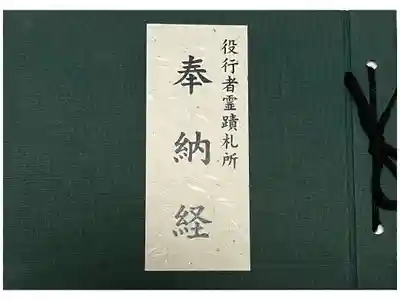 役行者霊蹟札所
奉納経